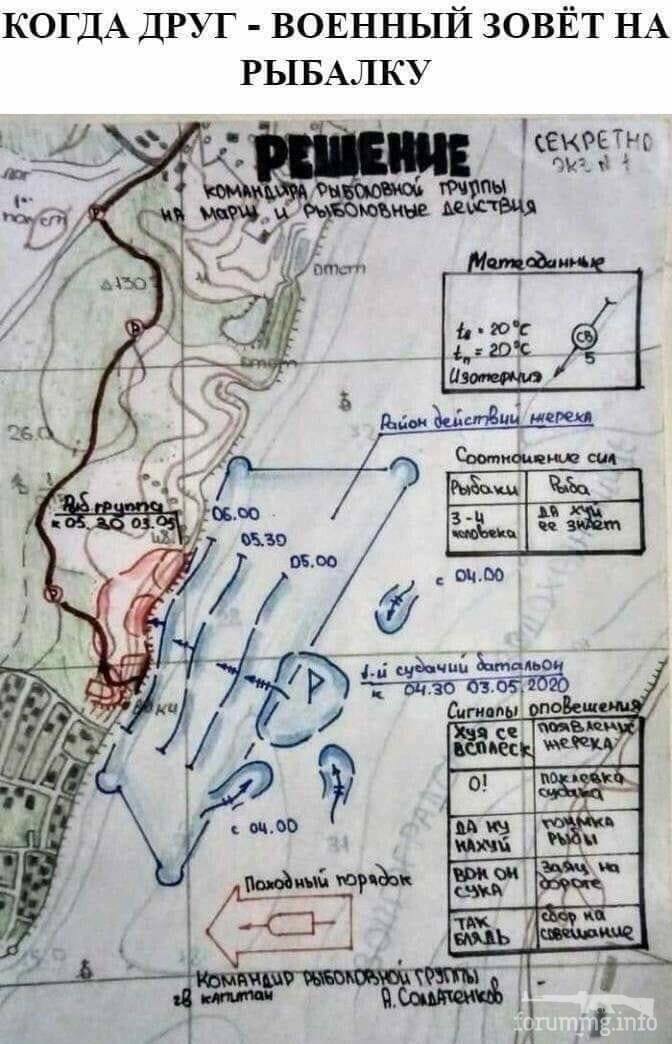 КОГДА ДРУГ - ВОЕННЫЙ ЗОВЁТ НА
РЫБАЛКУ
РЕШЕНИЕ
СЕКРЕТНО
ЭКЗ N 1
КОМАНДИРА РЫБОЛОВНОЙ ГРУППЫ
НА МАРШ И РЫБОЛОВНЫЕ ДЕЙСТВИЯ
отст
Δ130
Метеоданные
tв = 20°C
tп = 20°C
Изотермия
СВ
5
Район действий жереха
26.0
Соотношение сил
Рыбаки
Рыба
3-4
человека
ДА ХУЙ
ЕЕ ЗНАЕТ
Рыб.группа
к 05.30 03.05
06.00
05.30
05.00
с 04.00
1-й судачий батальон
к 04.30 03.05.2020
Р
Сигналы оповещения
ХУЯ СЕ
ВСПЛЕСК
ПОЯВЛЕНИЕ
ЖЕРЕХА
О!
ПОКЛЕВКА
СУДАКА
ДА НУ
НАХУЙ
ПОИМКА
РЫБЫ
ВОН ОН
СУКА
Заяц на
дороге
ТАК
БЛЯДЬ
сбор на
совещание
с 04.00
31
Походный порядок
КОМАНДИР РЫБОЛОВНОЙ ГРУППЫ
гв капитан
А.Солдатенков
forummg.info